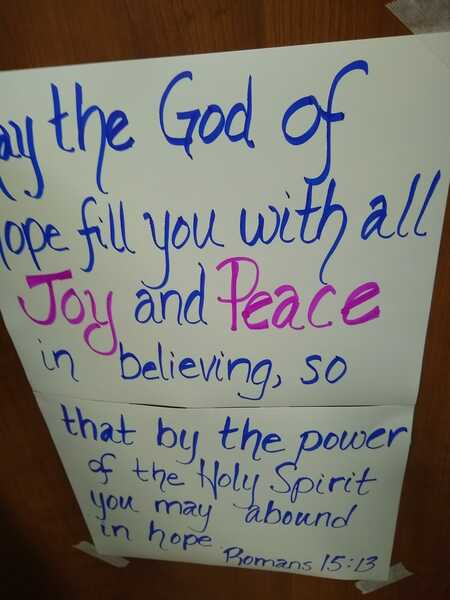 ay the God of
ope fill you with all
Joy and Peace
in believing, so
that by the power
of the Holy Spirit
you may abound
in hope.
Romans 15:13